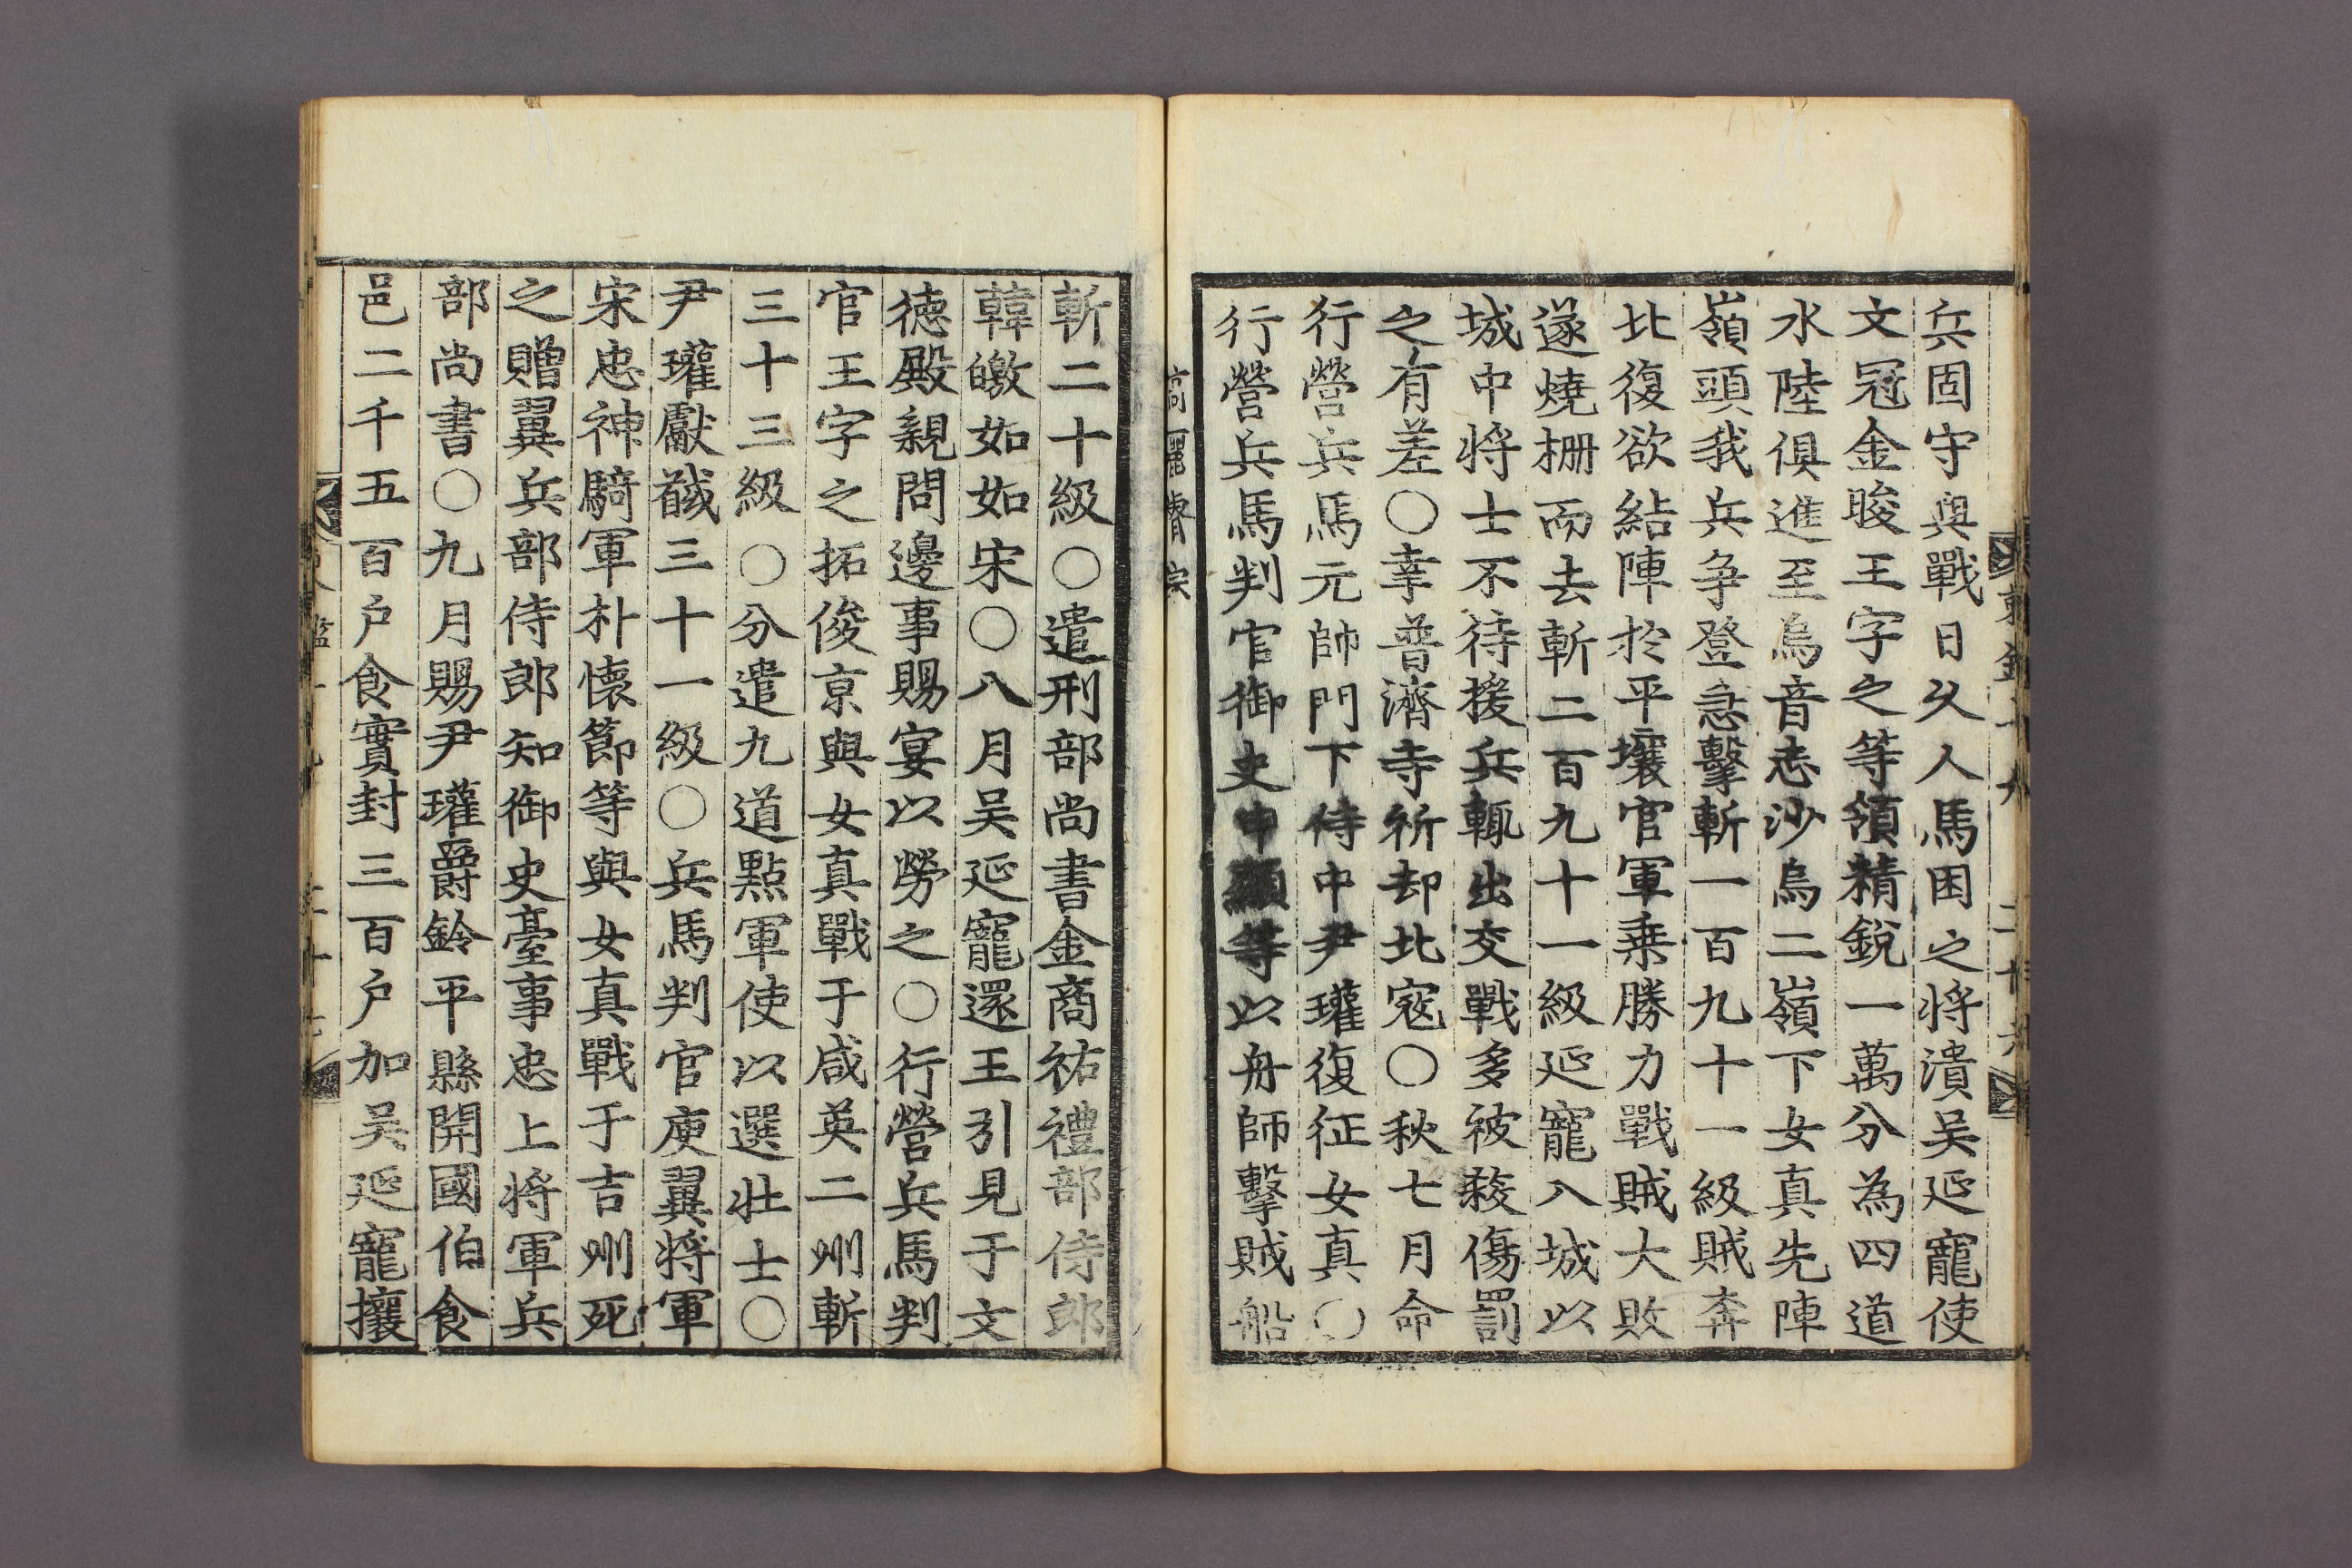 兵固守與戰日久人馬困之將潰吴延寵使
文冠金晙王字之等領精銳一萬分為四道
水陸俱進至烏音志沙烏二嶺下女真先陣
嶺頭我兵争登急擊斬一百九十一級賊奔
北復欲結陣於平壤官軍乗勝力戰賊大敗
遂燒柵而去斬二百九十一級延寵八城以
城中將士不待援兵輒出交戰多被殺傷罰
之有差○幸普濟寺祈却北寇○秋七月命
行營兵馬元帥門下侍中尹瓘復征女真○
行營兵馬判官御史申顯等以舟師擊賊船
高麗睿宗
斬二十級○遣刑部尚書金商祐禮部侍郎
韓皦如如宋○八月吴延寵還王引見于文
德殿親問邊事賜宴以勞之○行營兵馬判
官王字之拓俊京與女真戰于咸英二州斬
三十三級○分遣九道點軍使以選壯士○
尹瓘獻馘三十一級○兵馬判官庾翼將軍
宋忠神騎軍朴懷節等與女真戰于吉州死
之贈翼兵部侍郎知御史臺事忠上將軍兵
部尚書○九月賜尹瓘爵鈴平縣開國伯食
邑二千五百户食實封三百户加吴延寵攘